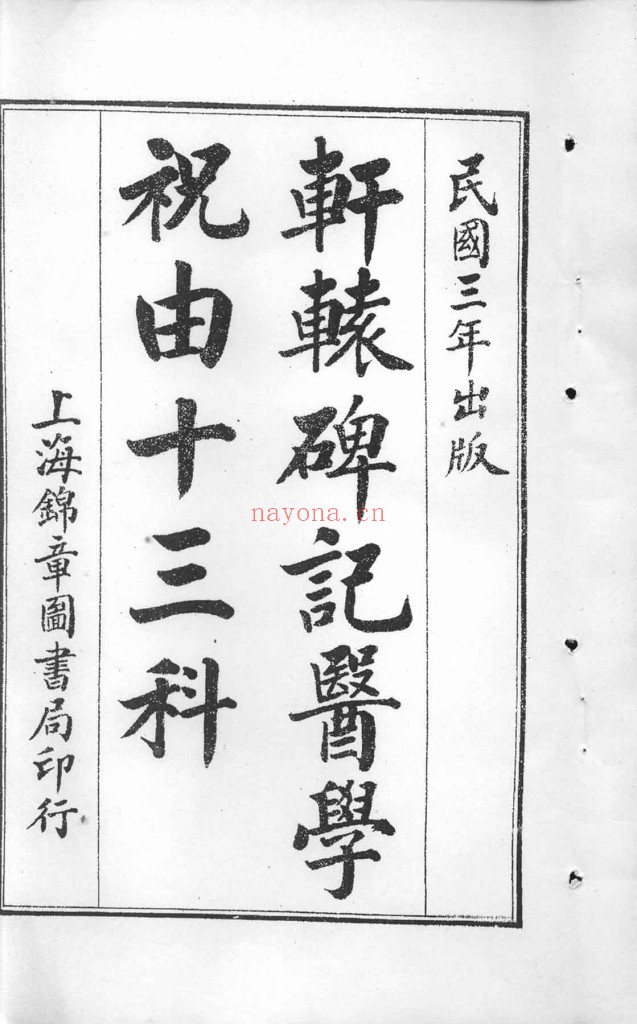 民國三年出版
軒轅碑記醫學
祝由十三科
上海錦章圖書局印行
nayona.cn